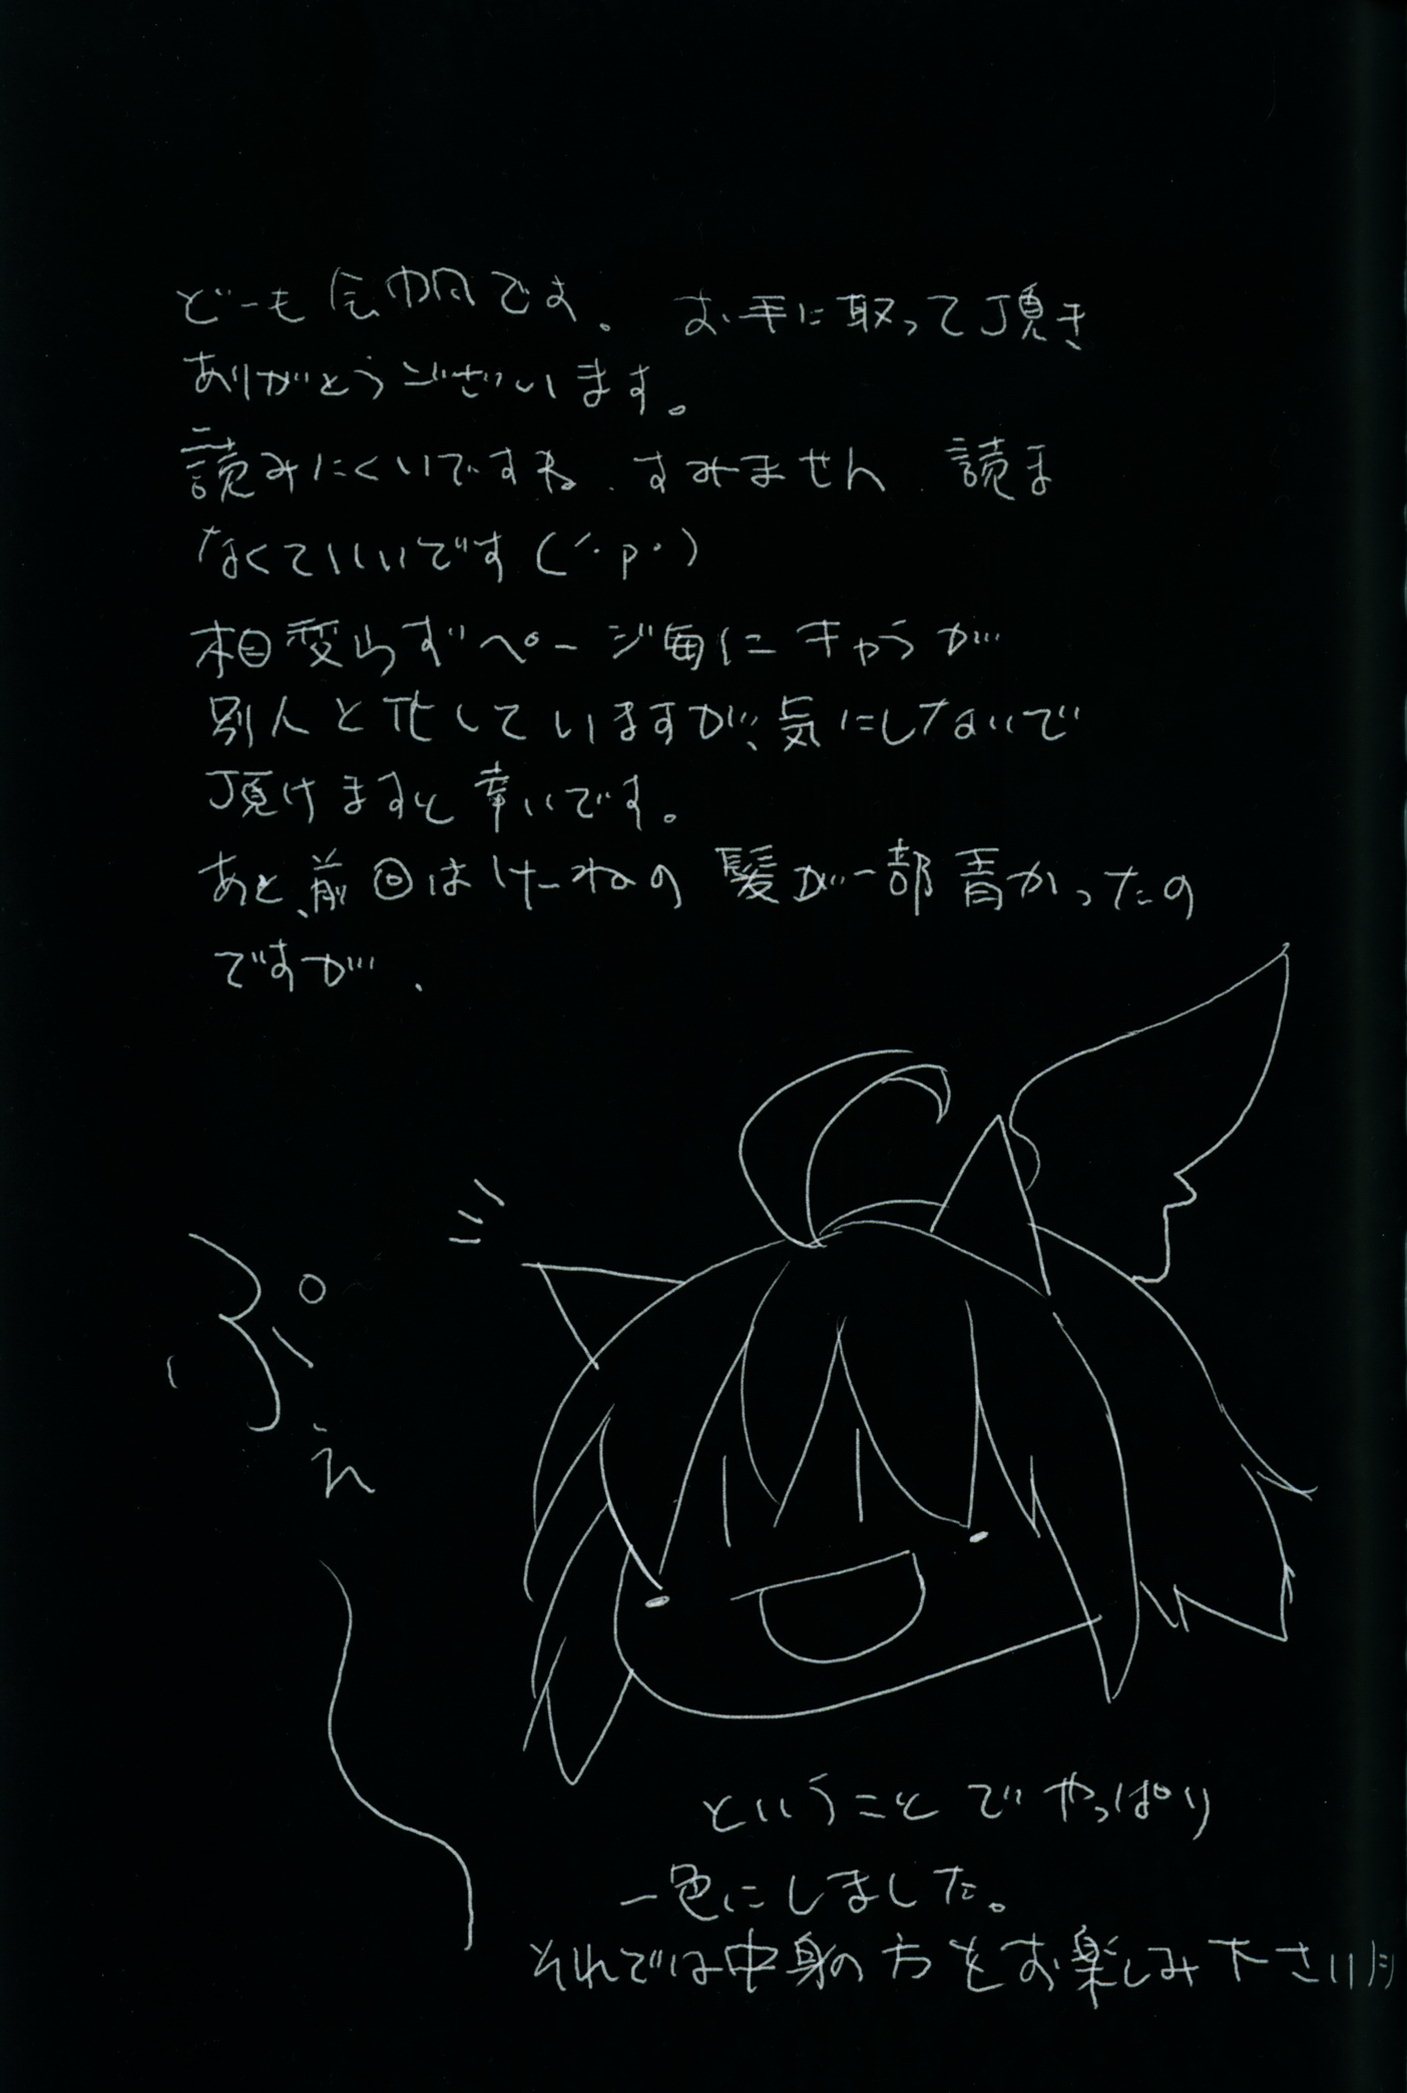 どーも です。 お手に取って頂き
ありがとうございます。
読みにくいですね、すみません、読ま
なくていいです(´・p・)
相変らずページ毎にキャラが
別人と化していますが、気にしないで
頂けますと幸いです。
あと、前回はけーねの髪が一部青かったの
ですが、
ぷぇ
ということでやっぱり
一色にしました。
それでは中身の方をお楽しみ下さい